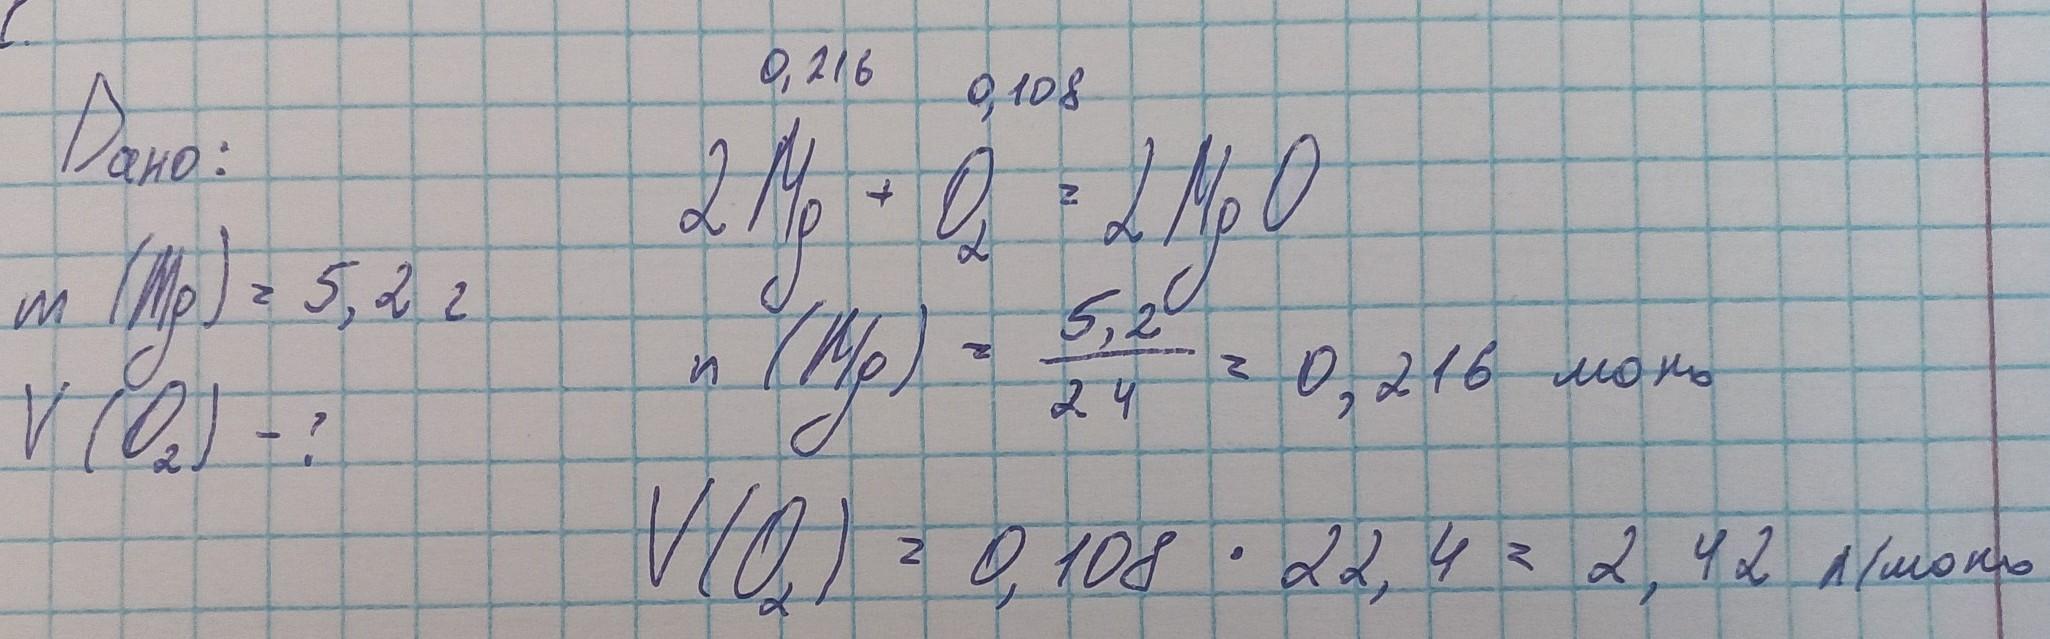 0,216 0,108
Дано:
2Mg + O₂ = 2MgO
m (Mg) = 5,2 г
n (Mg) = 5,2/24 = 0,216 моль
V (O₂) - ?
V(O₂) = 0,108 · 22,4 = 2,42 л/моль